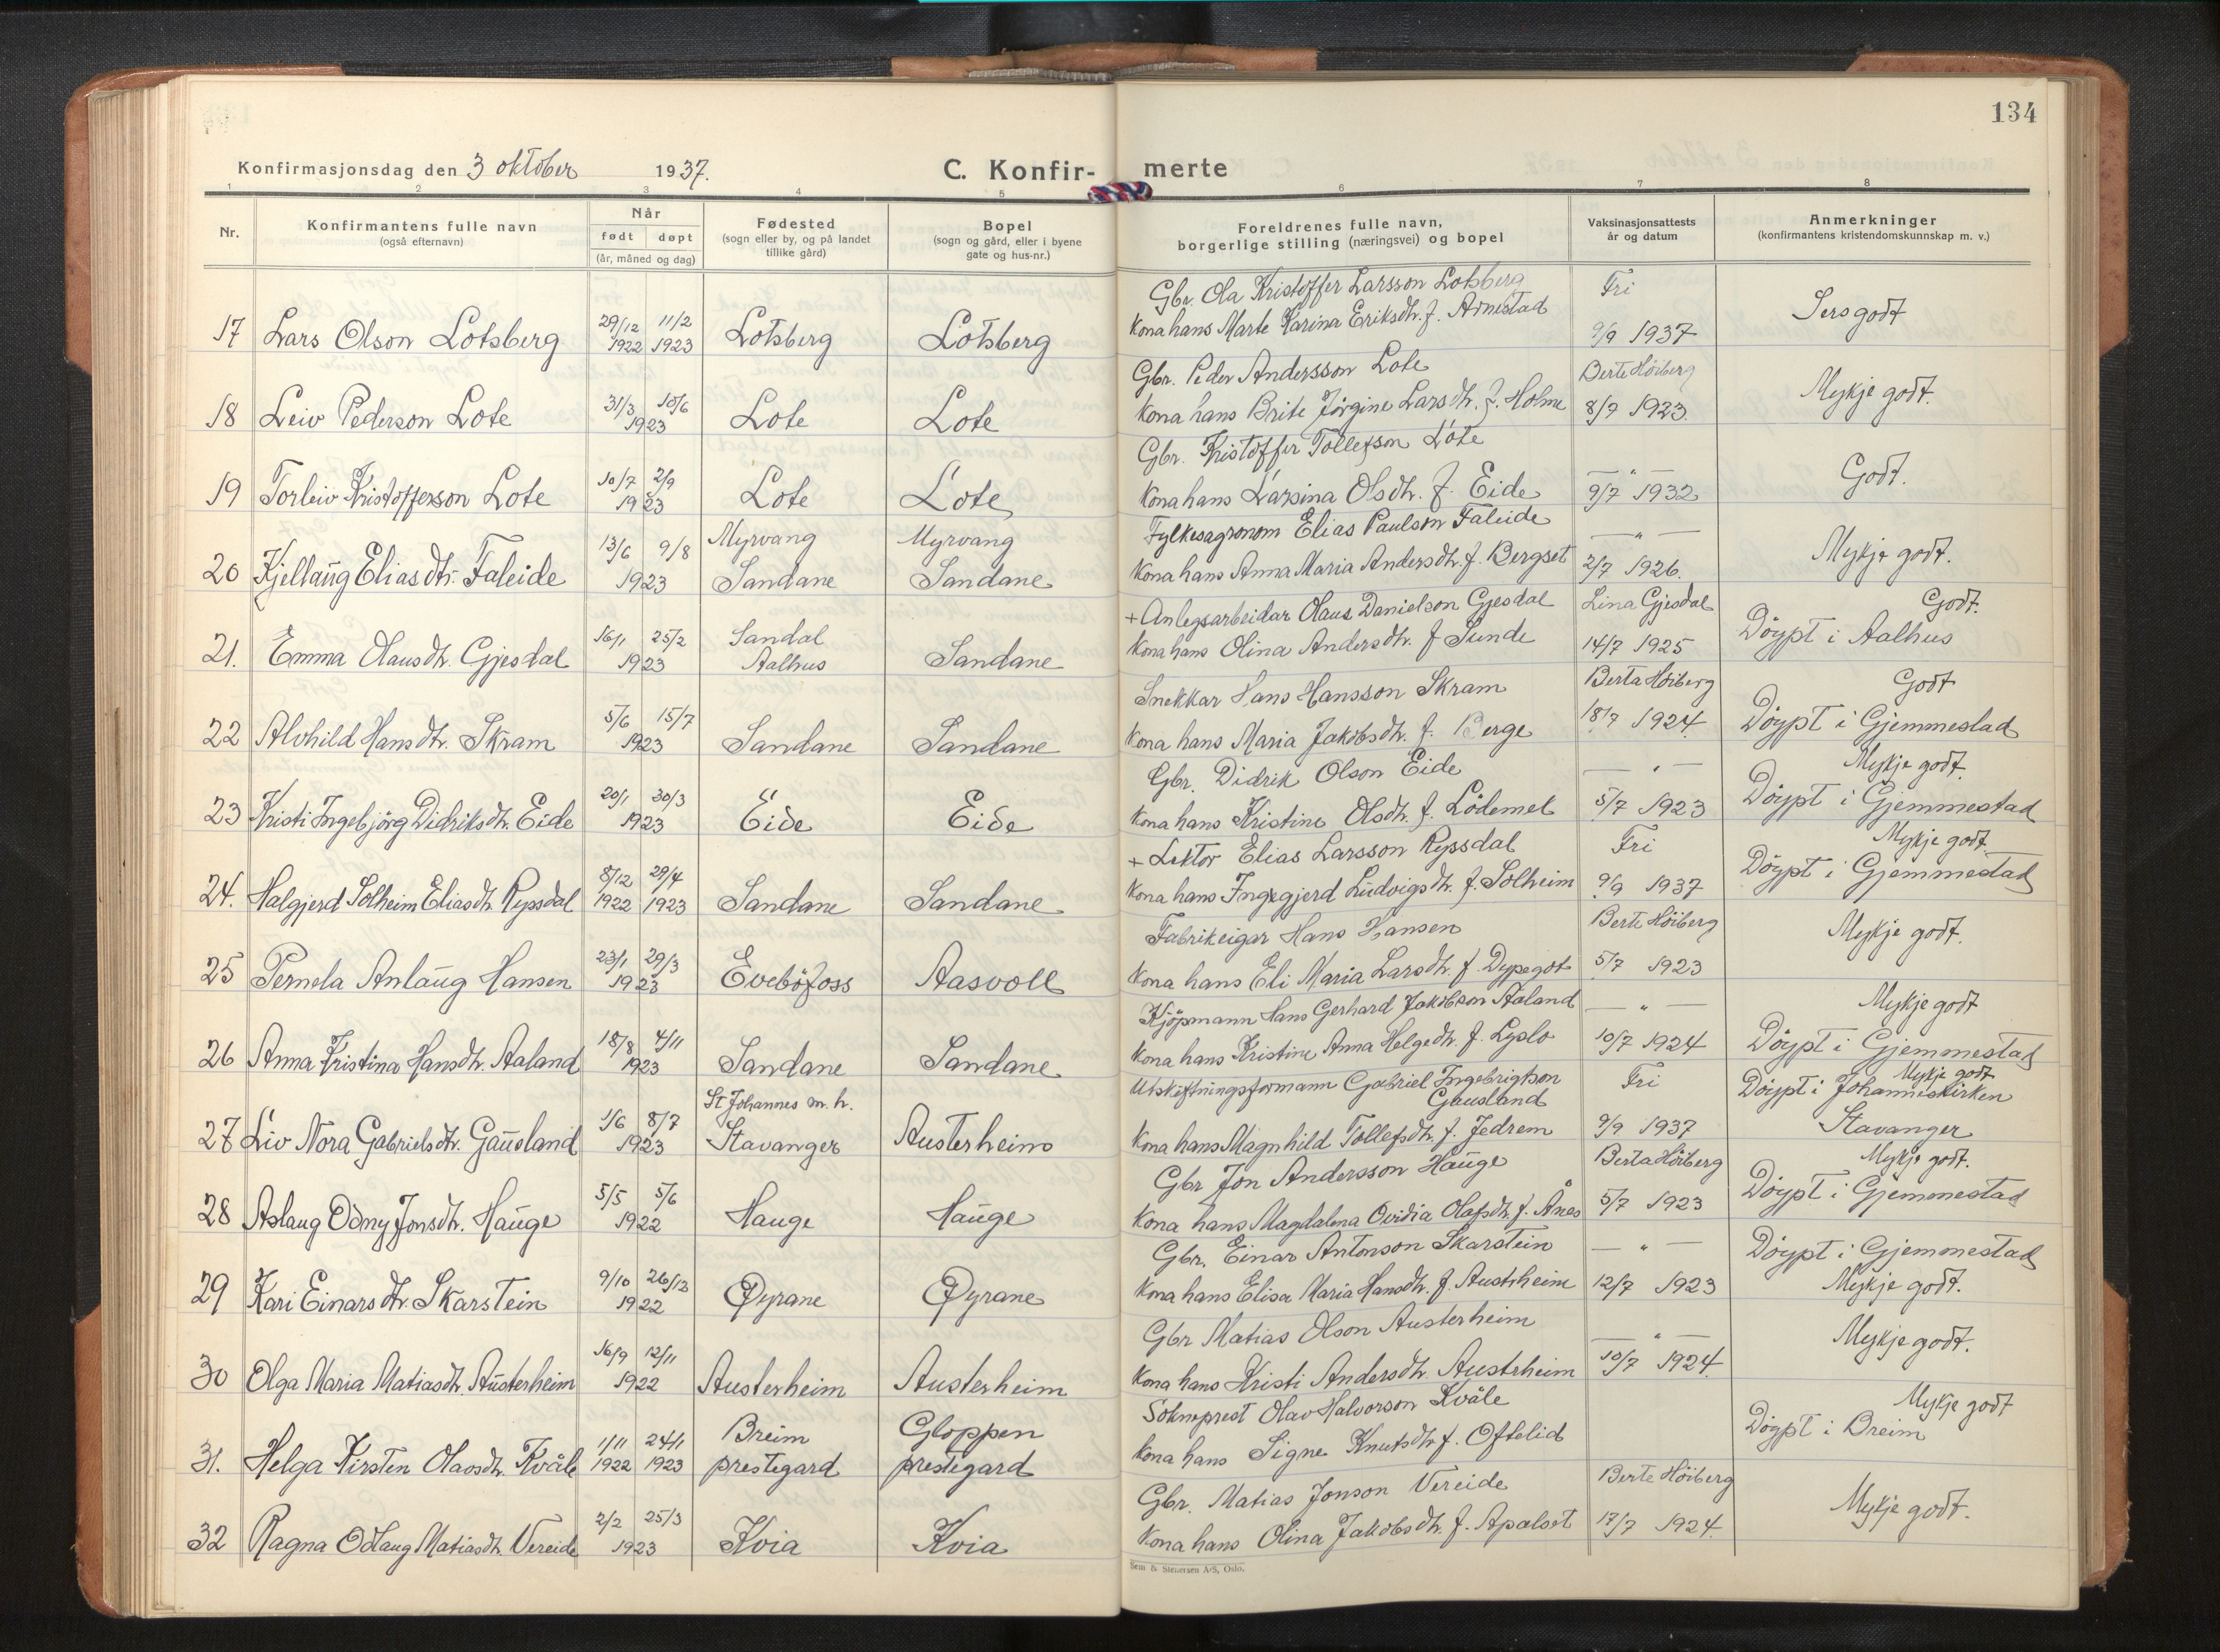 134
Konfirmasjonsdag den 3 oktober 1937.
C. Konfir-
merte
1 2 3 4 5 6 7 8
Nr.
Konfirmantens fulle navn
(også efternavn)
Når
født døpt
(år, måned og dag)
Fødested
(sogn eller by, og på landet
tillike gård)
Bopel
(sogn og gård, eller i byene
gate og hus-nr.)
Foreldrenes fulle navn,
borgerlige stilling (næringsvei) og bopel
Vaksinasjonsattests
år og datum
Anmerkninger
(konfirmantens kristendomskunnskap m. v.)
Gbr. Ola Kristoffer Larsson Lotsberg Fri
17 Lars Olson Lotsberg 29/12 1922 11/2 1923 Lotsberg Lotsberg Kona hans Marte Karina Eriksdtr. f. Arnestad 9/9 1937 Sers godt
Gbr. Peder Andersson Lote Berte Höiberg
18 Leiv Pederson Lote 31/3 10/6 1923 Lote Lote Kona hans Brite Jörgine Larsdtr. f. Holme 8/7 1923. Mykje godt.
Gbr. Kristoffer Tollefson Lote
19 Torleiv Kristofferson Lote 10/7 2/9 1923 Lote Lote Kona hans Larsina Olsdtr. f. Eide — " — 9/7 1932 Godt.
Myrvang Myrvang Fylkesagronom Elias Paulson Faleide — " —
20 Kjellaug Eliasdtr. Faleide 13/6 9/8 1923 Sandane Sandane Kona hans Anna Maria Andersdtr. f. Bergset 2/7 1926. Mykje godt.
Sandal + Anlegsarbeidar Olaus Danielson Gjesdal Lina Gjesdal Godt.
21. Emma Olausdtr. Gjesdal 16/1 25/2 1923 Aalhus Sandane Kona hans Olina Andersdtr. f Sunde 14/7 1925 Döypt i Aalhus
Snekkar Hans Hansson Skram Berta Höiberg Godt
22 Alvhild Hansdtr. Skram 5/6 15/7 1923 Sandane Sandane Kona hans Maria Jakobsdtr. f. Berge 18/7 1924 Döypt i Gjemmestad
Gbr. Didrik Olson Eide — " — Mykje godt.
23 Kristi Ingebjörg Didriksdtr. Eide 20/1 30/3 1923 Eide Eide Kona hans Kristine Olsdtr. f. Lödemel 5/7 1923 Döypt i Gjemmestad
+ Lektor Elias Larsson Ryssdal Fri Mykje godt.
24. Halgjerd Solheim Eliasdtr. Ryssdal 8/12 1922 29/4 1923 Sandane Sandane Kona hans Ingegjerd Ludvigsdtr. f. Solheim 9/9 1937 Döypt i Gjemmestad
Fabrikeigar Hans Hansen Berte Höiberg
25 Pernela Anlaug Hansen 23/1 29/3 1923 Eveböfoss Aasvoll Kona hans Eli Maria Larsdtr. f. Dypegot 5/7 1923 Mykje godt.
Kjöpmann Hans Gerhard Jakobson Aaland — " — Mykje godt
26 Anna Kristina Hansdtr. Aaland 18/8 4/11 1923 Sandane Sandane Kona hans Kristine Anna Helgedtr. f. Lyslo 10/7 1924 Döypt i Gjemmestad
St Johannes m. h. Utskiftningsformann Gabriel Ingebrigtson Gausland Fri Mykje godt
27 Liv Nora Gabrielsdtr. Gausland 1/6 8/7 1923 Stavanger Austerheim Kona hans Magnhild Tollefsdtr. f. Jedrem 9/9 1937 Döypt i Johanneskirken Stavanger
Gbr Jon Andersson Hauge Berta Höiberg Mykje godt.
28 Aslaug Odny Jonsdtr. Hauge 5/5 5/6 1922 Hauge Hauge Kona hans Magdalena Ovidia Olafsdtr. f. Ånes 5/7 1923 Döypt i Gjemmestad
Gbr. Einar Antonson Skarstein — " — Döypt i Gjemmestad
29 Kari Einarsdtr. Skarstein 9/10 26/12 1922 Øyrane Øyrane Kona hans Elisa Maria Hansdtr. f. Austrheim 12/7 1923 Mykje godt.
Gbr Matias Olson Austerheim — " —
30 Olga Maria Matiasdtr. Austerheim 16/9 12/11 1922 Austerheim Austerheim Kona hans Kristi Andersdtr. Austrheim 10/7 1924. Mykje godt.
Breim Gloppen Sokneprest Olav Halvorson Kvåle Mykje godt
31. Helga Kirsten Olavsdtr. Kvåle 1/11 1922 24/1 1923 prestegard prestegard Kona hans Signe Knutsdtr f. Oftelid Döypt i Breim
Gbr. Matias Jonson Vereide Berte Höiberg
32 Ragna Odlaug Matiasdtr. Vereide 2/2 25/3 1923 Kvia Kvia Kona hans Olina Jakobsdtr. f. Apalset 17/7 1924. Mykje godt.
Sem & Stenersen A/S, Oslo.